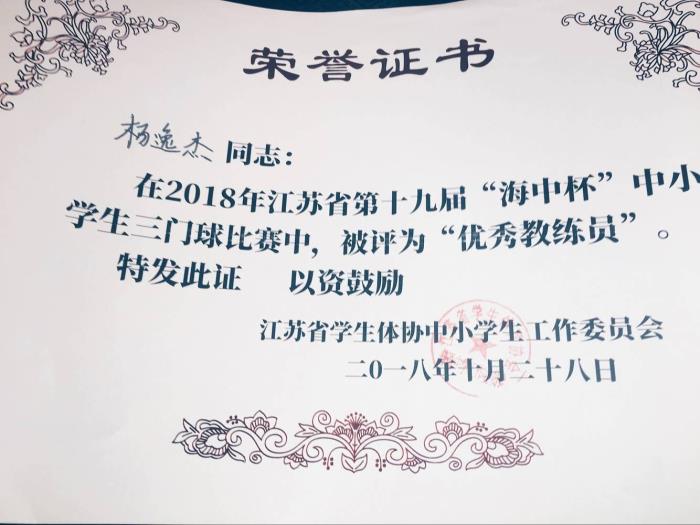 荣誉证书
杨逸杰 同志：
在2018年江苏省第十九届“海中杯”中小
学生三门球比赛中，被评为“优秀教练员”。
特发此证 以资鼓励
江苏省学生体协中小学生工作委员会
二〇一八年十月二十八日